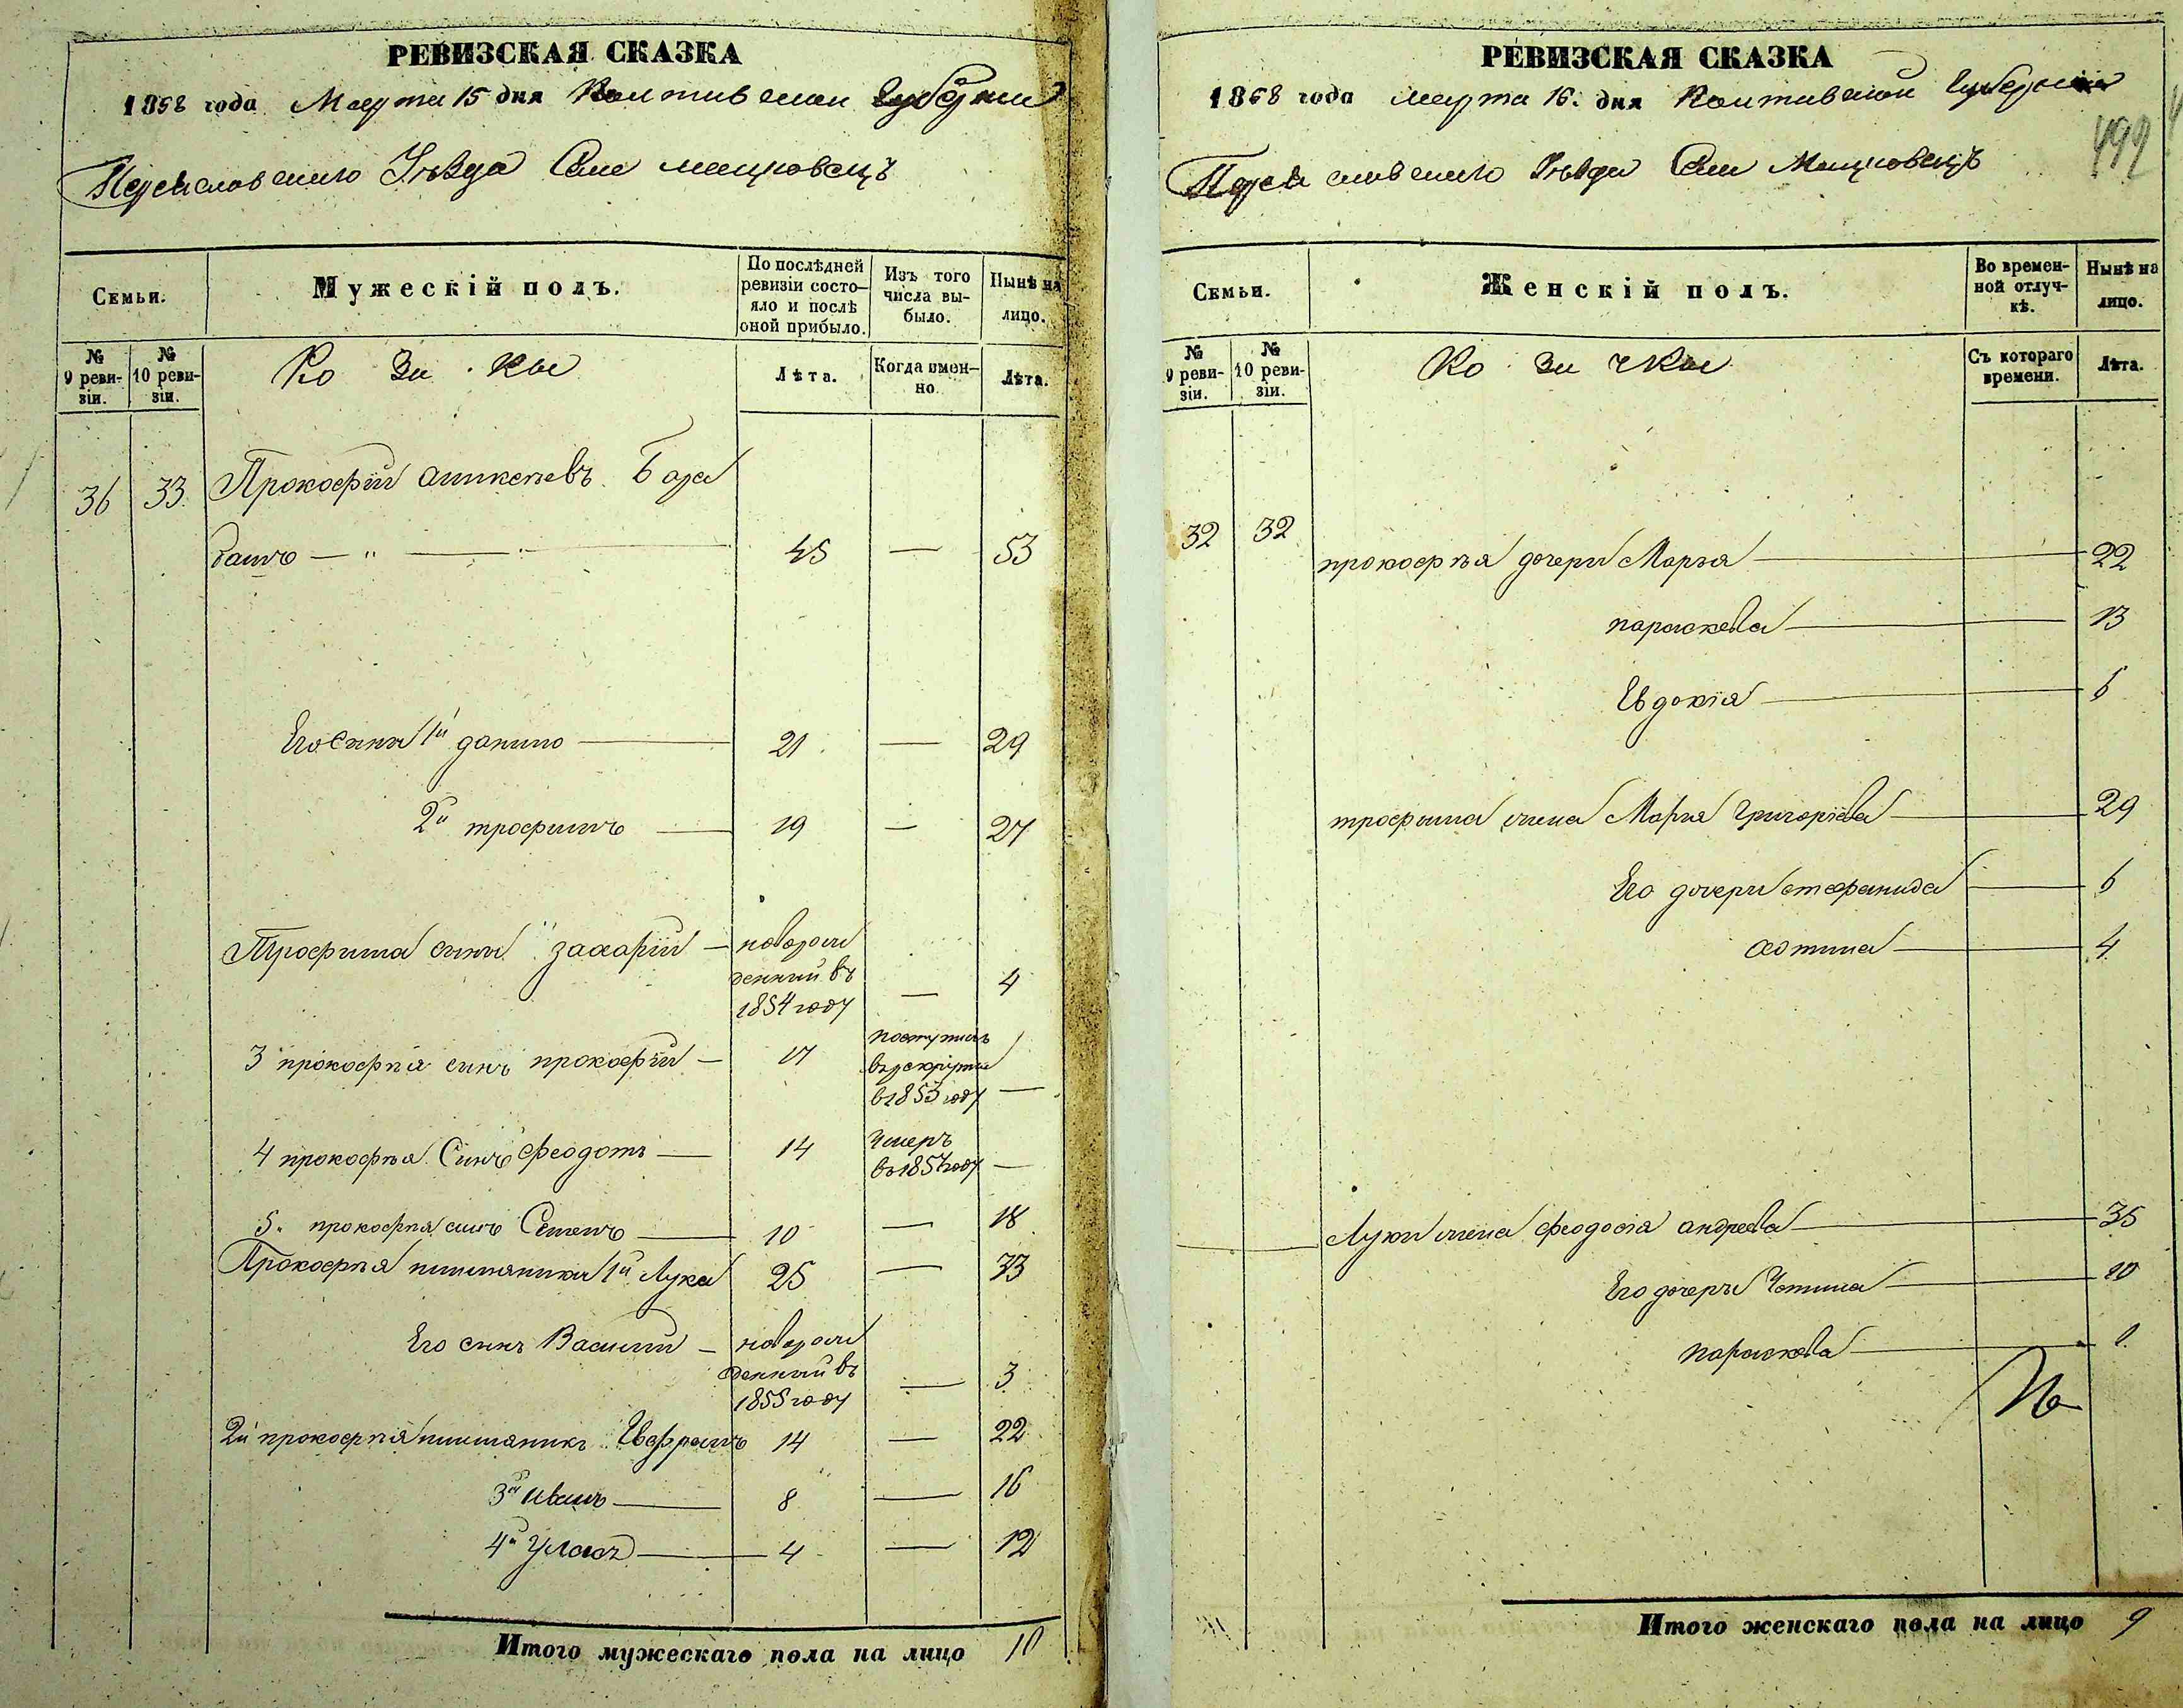 РЕВИЗСКАЯ СКАЗКА
1858 года Марта 15 дня Полтавской Губернии
Переяславского Уезда Села
Семьи.
Мужескій полъ.
По послѣдней ревизіи состояло и послѣ оной прибыло.
Изъ того числа выбыло.
Нынѣ на лицо.
№ 9 ревизіи.
№ 10 ревизіи.
Ко за ки
Лѣта.
Когда именно.
Лѣта.
36 33 Прокофій
45 — 53
Его сыны 1й данило 21 — 29
2й трофимъ 19 — 27
Трофима сынъ захарій — новорож
денный въ
1854 году — 4
3 прокофія синъ прокофій — 17 поступилъ
в рекруты
в 1853 году —
4 прокофія Синъ феодотъ — 14 Умеръ
въ 1854 году —
5. прокофія синъ Семенъ 10 — 18
Прокофія племяники 1й Лука 25 — 33
Его синъ Василий — новорож
денный въ
1855 году — 3
2й прокофія племяникъ Ефремъ 14 — 22
3й Иванъ 8 — 16
4й Улас 4 — 12
Итого мужескаго пола на лицо 10
РЕВИЗСКАЯ СКАЗКА
1858 года марта 15. дня Полтавской Губернии
Переяславского Уезда Села
499
Семьи.
Женскій полъ.
Во временной отлучкѣ.
Нынѣ на лицо.
№ 9 ревизіи.
№ 10 ревизіи.
Ко за чки
Съ котораго времени.
Лѣта.
32 32
прокофія дочери Марія 22
параскева 13
Евдокія 6
трофима жена Марія Григоріева 29
Его дочери стефанида 6
хотина 4
Луки жена феодосія андреева 35
Его дочеры 10
параскева 1
Итого женскаго пола на лицо 9